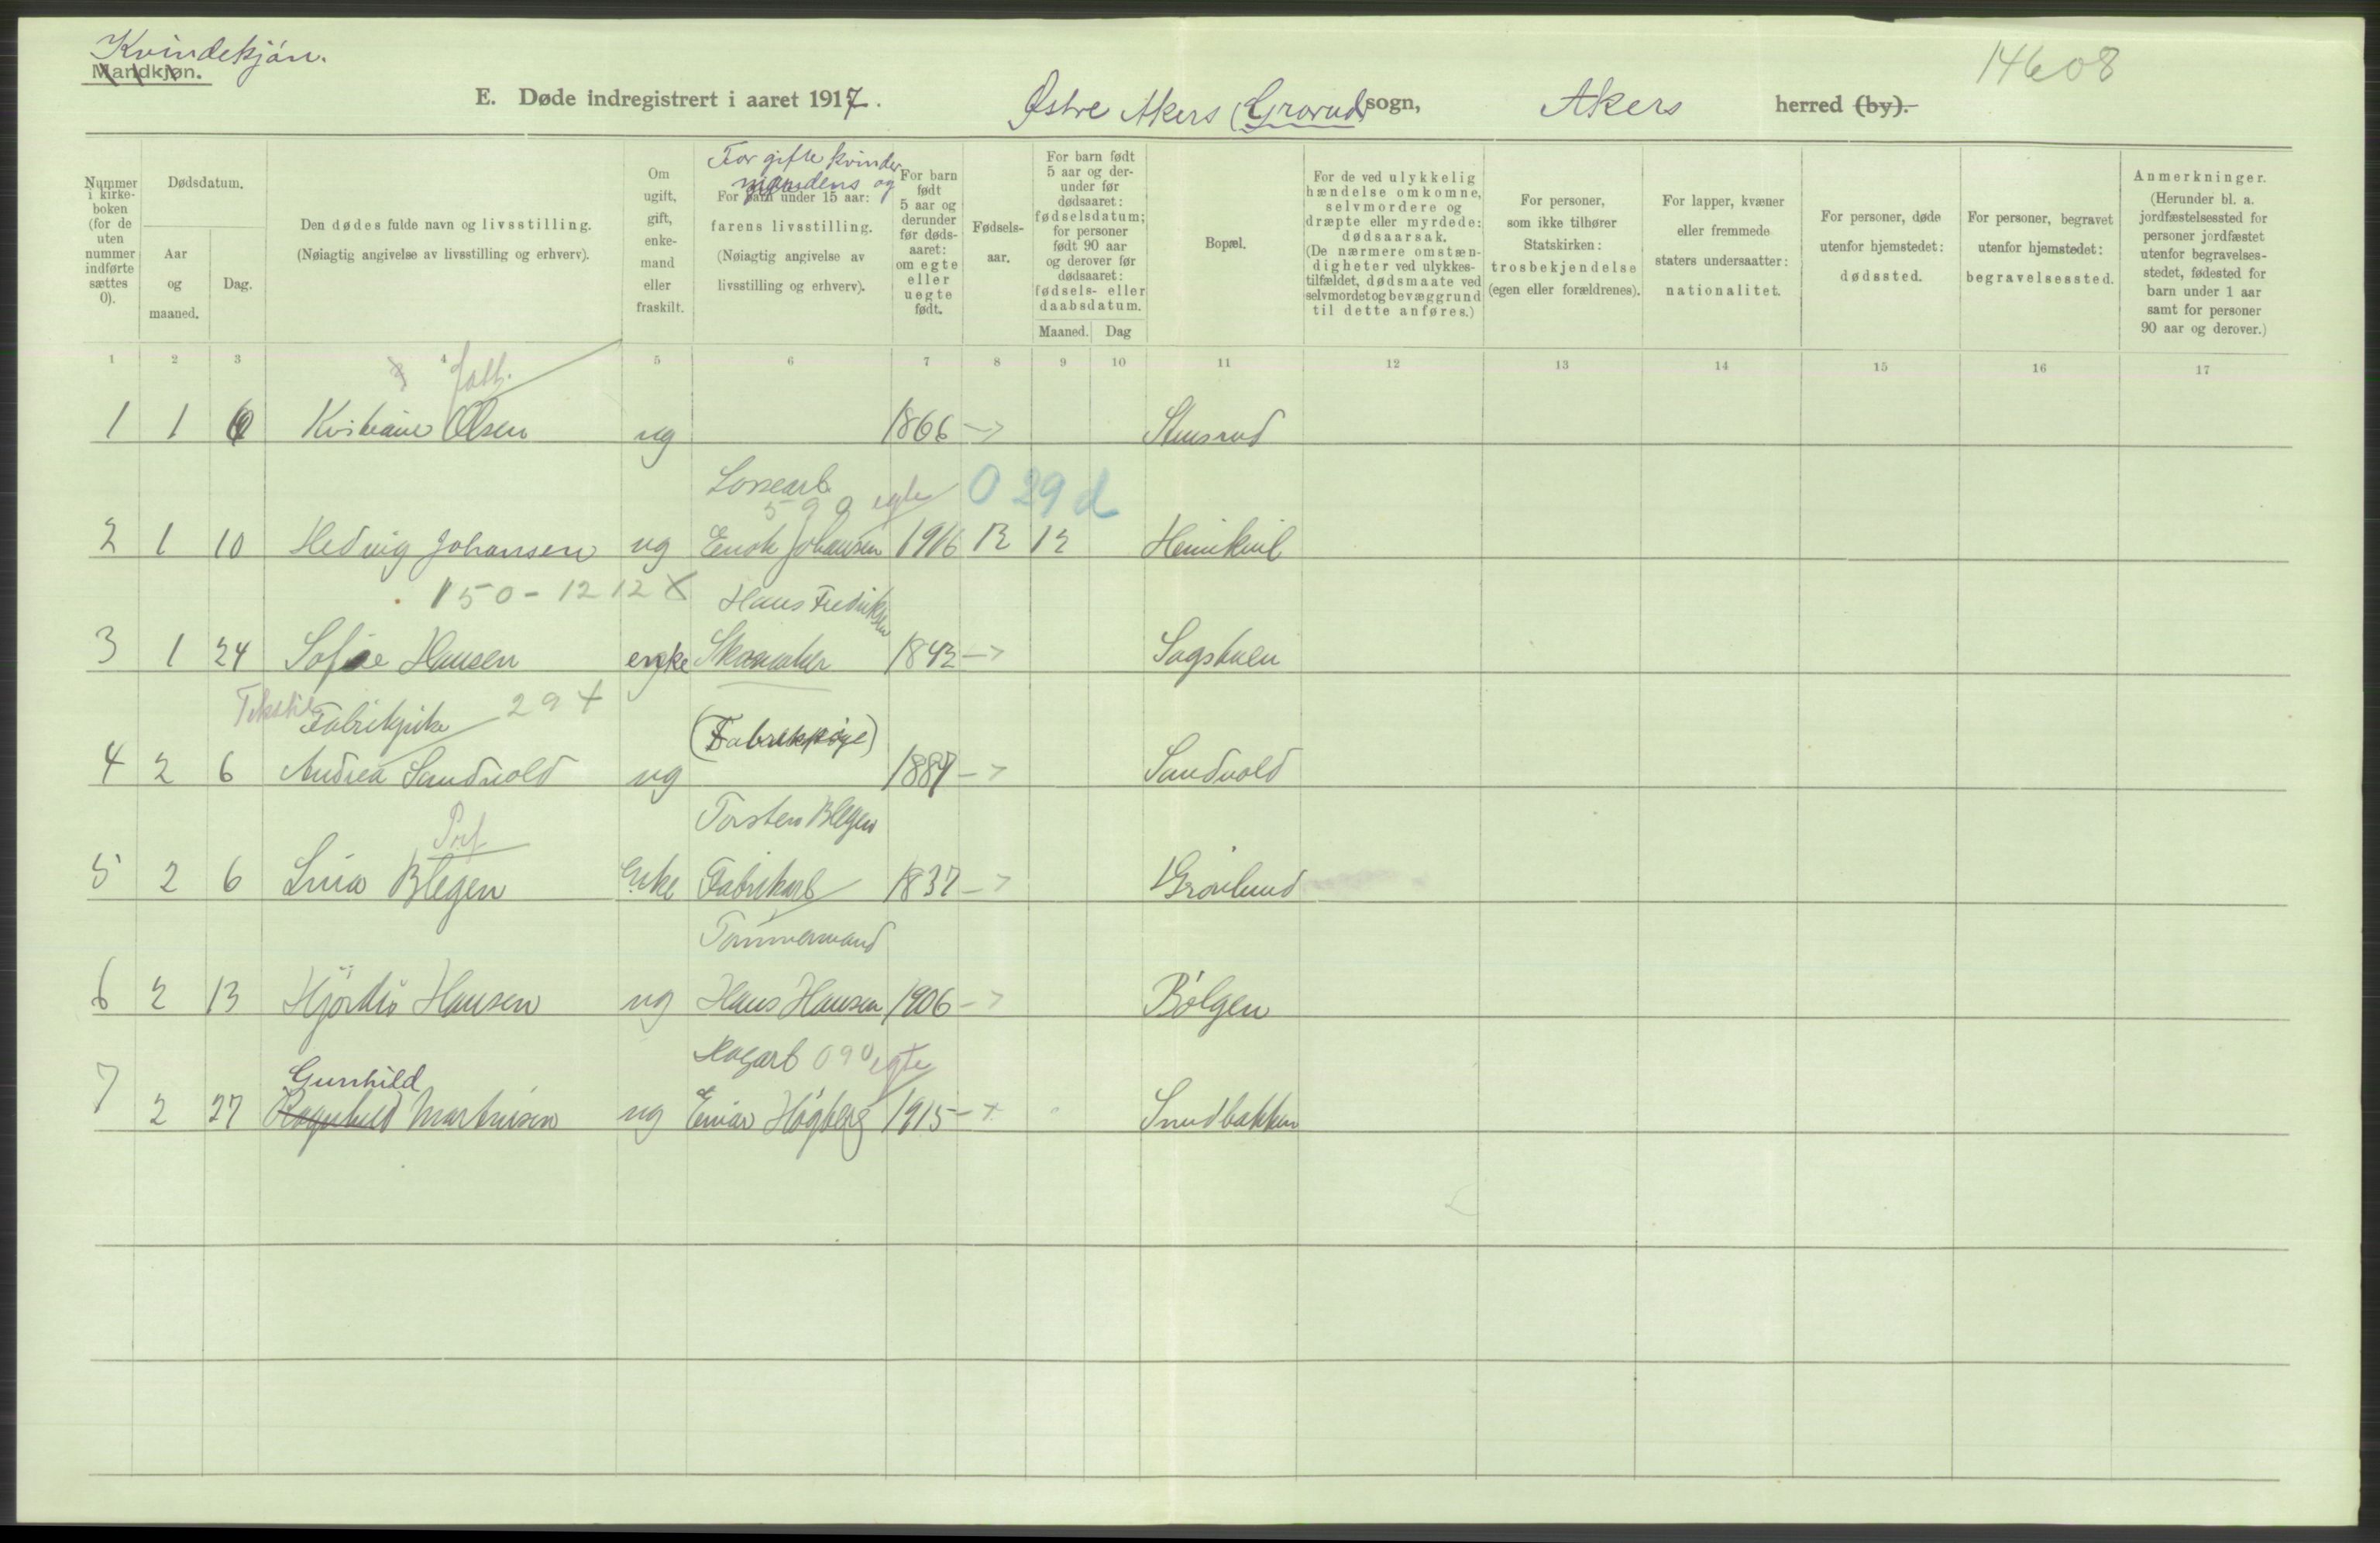 Kvindekjøn.
Mandkjøn.
14608
E. Døde indregistrert i aaret 1917. Østre Akers (Grorud) sogn, Akers herred (by).
Nummer i kirkeboken (for de uten nummer indførte sættes 0).
Dødsdatum.
Aar og maaned.
Dag.
Den dødes fulde navn og livsstilling.
(Nøiagtig angivelse av livsstilling og erhverv).
Om ugift, gift, enkemand eller fraskilt.
For gifte kvinder mandens og
For barn under 15 aar:
farens livsstilling.
(Nøiagtig angivelse av livsstilling og erhverv).
For barn født 5 aar og derunder før dødsaaret: om egte eller uegte født.
Fødselsaar.
For barn født 5 aar og derunder før dødsaaret: fødselsdatum; for personer født 90 aar og derover før dødsaaret: fødsels- eller daabsdatum.
Maaned. Dag
Bopæl.
For de ved ulykkelig hændelse omkomne, selvmordere og dræpte eller myrdede: dødsaarsak.
(De nærmere omstændigheter ved ulykkestilfældet, dødsmaate ved selvmordet og bevæggrund til dette anføres.)
For personer, som ikke tilhører Statskirken: trosbekjendelse (egen eller forældrenes).
For lapper, kvæner eller fremmede staters undersaatter: nationalitet.
For personer, døde utenfor hjemstedet: dødssted.
For personer, begravet utenfor hjemstedet: begravelsessted.
Anmerkninger.
(Herunder bl. a. jordfæstelsessted for personer jordfæstet utenfor begravelsesstedet, fødested for barn under 1 aar samt for personer 90 aar og derover.)
1 2 3 4 5 6 7 8 9 10 11 12 13 14 15 16 17
1 1 6 Kristiane Olsen ug 1866 ->
Løsearb.
599 egte 0 29 d
2 1 10 Hedvig Johansen ug Enok Johansen 1916 12 12
150-1212 X Hans Fredriksen
3 1 24 Sofie Hansen enke Skomaker 1842 ->
Tekstil Fabrikpike 29 +
(Fabrikpige)
4 2 6 Andrea Sandvold ug 1887 -> Sandvold
Torsten Blegen
5 2 6 Lina Blegen Enke Fabrikarb 1837 -> Grønlund
Tømmermand
6 2 13 Hjørdis Hansen ug Hans Hansen 1906 -> Bølgen
090 egte
Gunhild
7 2 27 Ragnhild Martinsen ug Einar Høgberg 1915 -+ Snudbakken